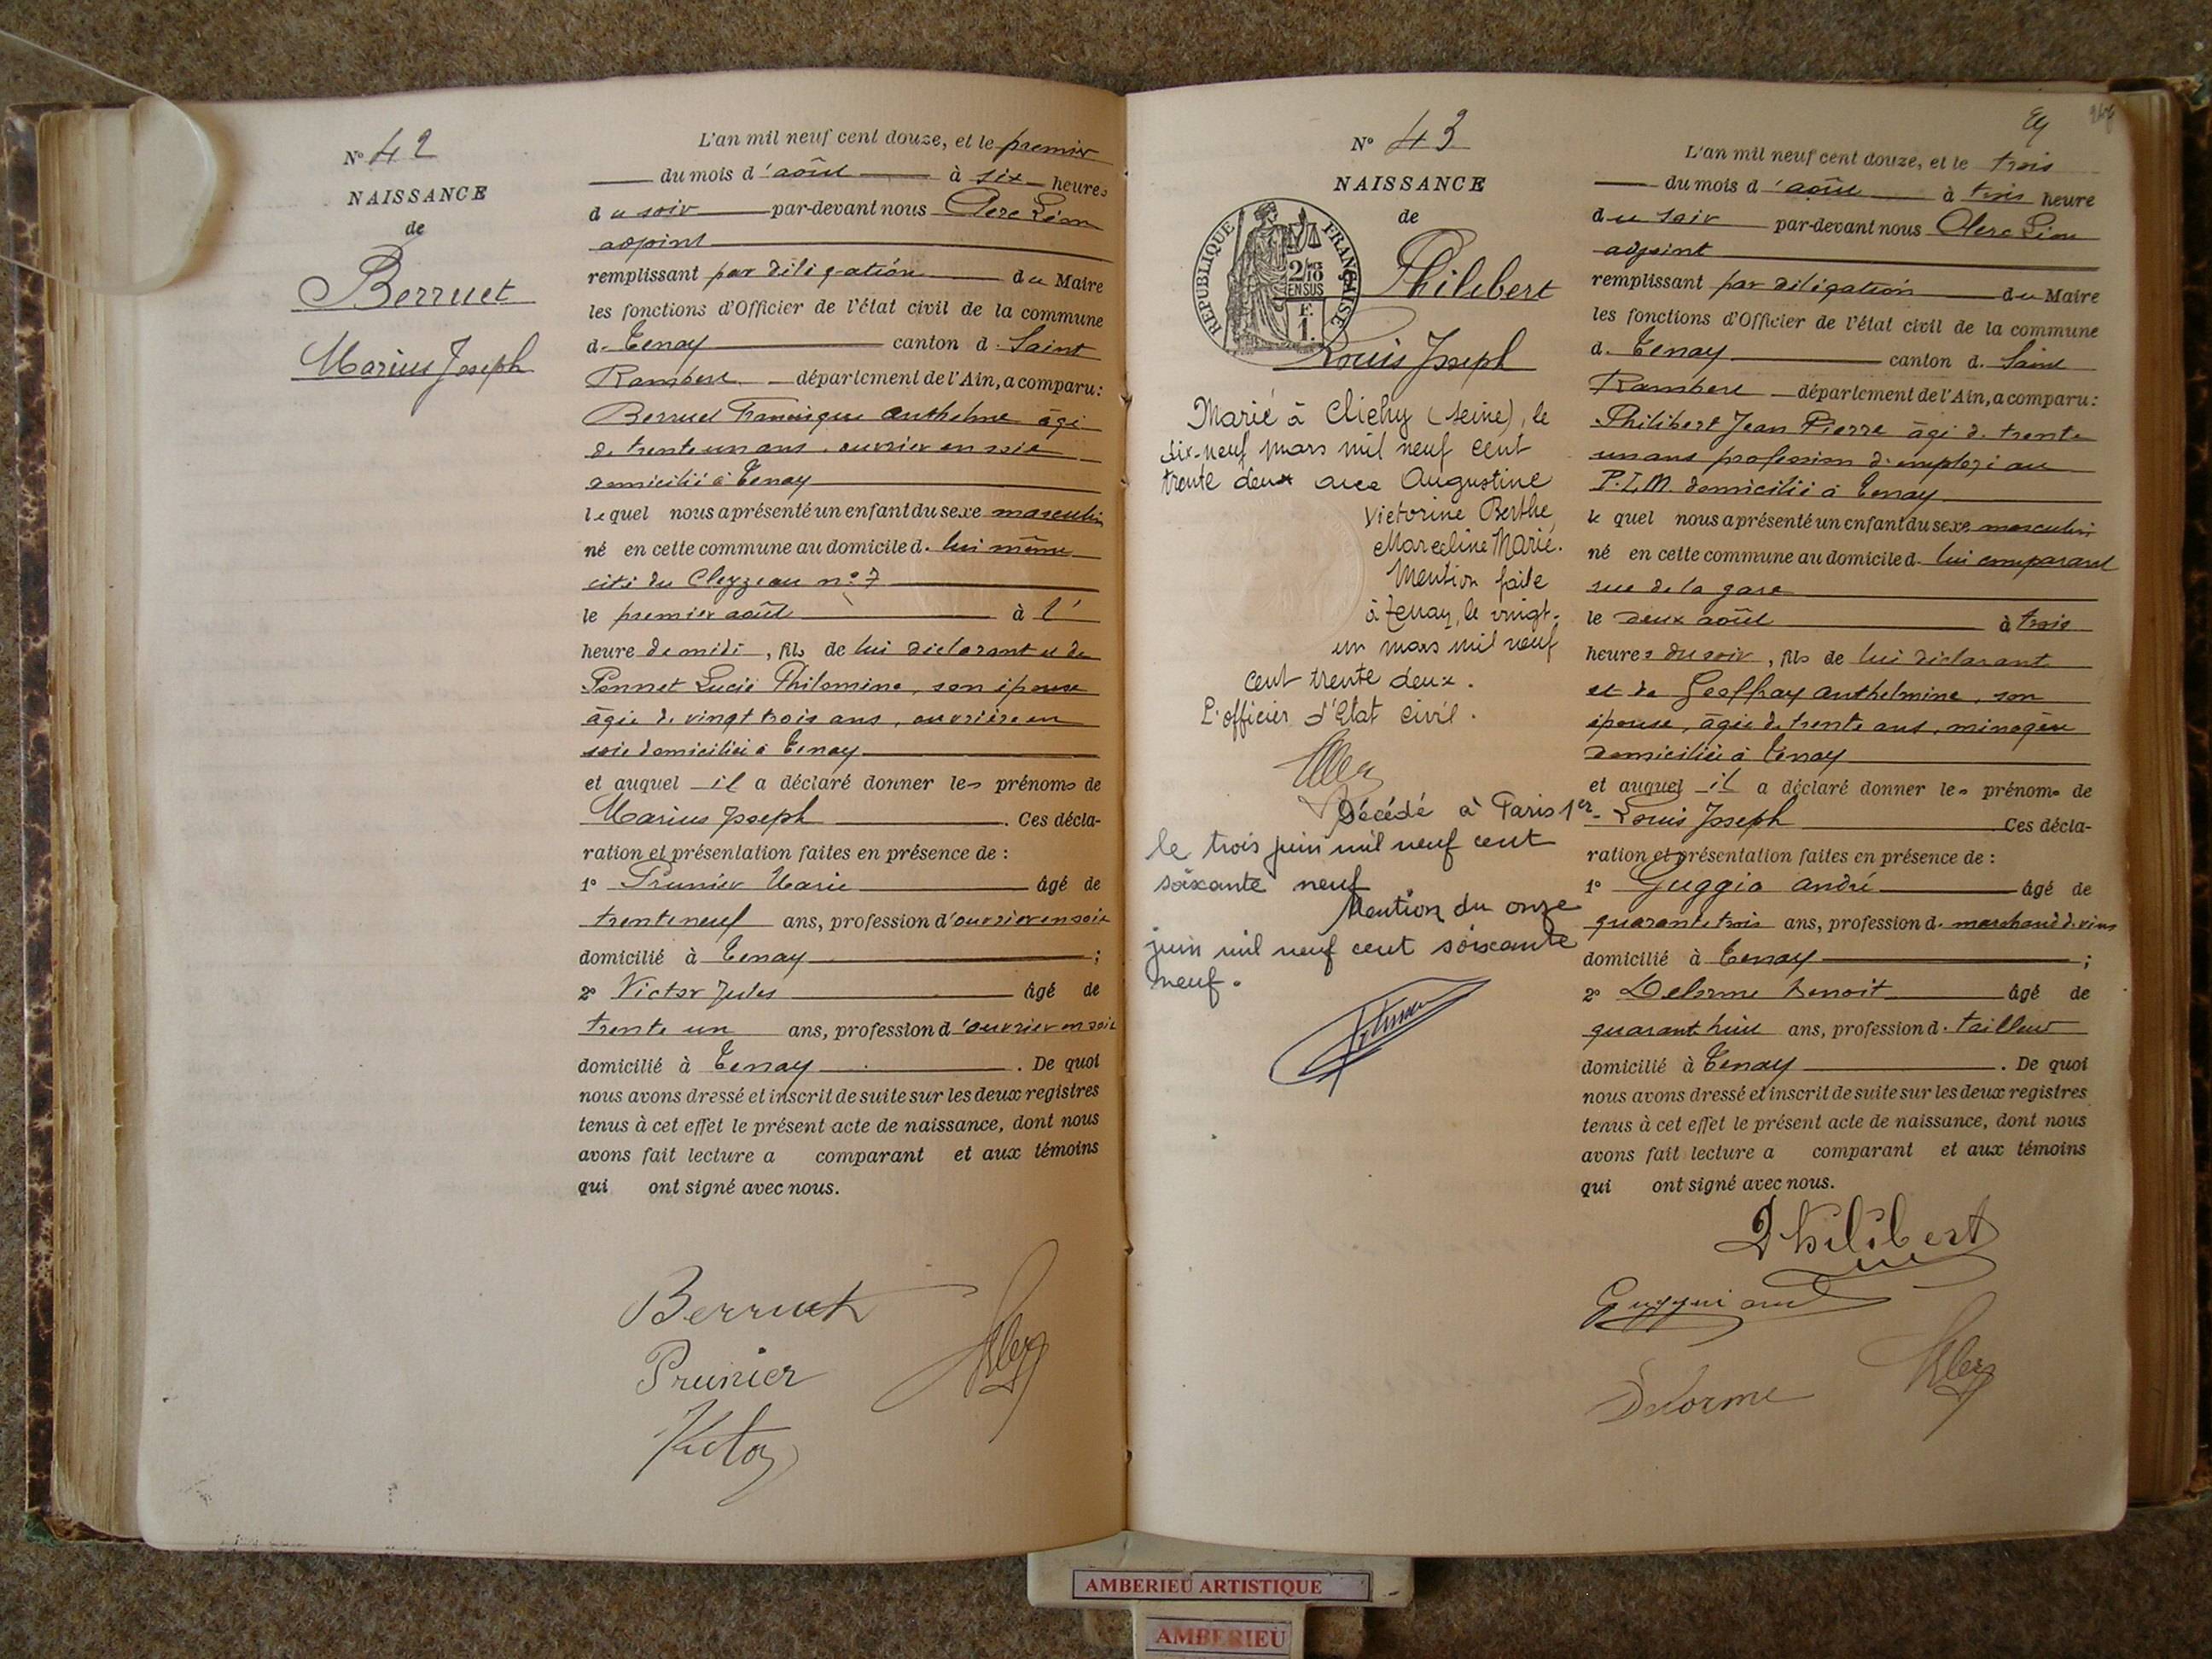 N° 42
NAISSANCE
de
Berruet
Marius Joseph
L'an mil neuf cent douze, et le premier
du mois d'août à six heures
du soir par-devant nous Clerc Léon
adjoint
remplissant par délégation du Maire
les fonctions d'Officier de l'état civil de la commune
de Tenay canton de Saint
Rambert département de l'Ain, a comparu:
Berruet Francisque Anthelme âgé
de trente un ans, ouvrier en soie
domicilié à Tenay
lequel nous a présenté un enfant du sexe masculin
né en cette commune au domicile de lui même
cité du Cleyzieu n° 7
le premier août à l'
heure de midi, fils de lui déclarant et de
Ponnet Lucie Philomine, son épouse
âgée de vingt trois ans, ouvrière en
soie domiciliée à Tenay
et auquel il a déclaré donner les prénoms de
Marius Joseph. Ces décla-
ration et présentation faites en présence de :
1° Prunier Marie âgé de
trente neuf ans, profession d'ouvrier en soie
domicilié à Tenay ;
2° Victor Jules âgé de
trente un ans, profession d'ouvrier en soie
domicilié à Tenay. De quoi
nous avons dressé et inscrit de suite sur les deux registres
tenus à cet effet le présent acte de naissance, dont nous
avons fait lecture a comparant et aux témoins
qui ont signé avec nous.
Berruet
Prunier
Victor
N° 43
NAISSANCE
de
RÉPUBLIQUE FRANÇAISE
2/10
EN SUS
F.
1.
Philibert
Louis Joseph
Marié à Clichy (Seine), le
dix-neuf mars mil neuf cent
trente deux avec Augustine
Victorine Berthe
Marceline Marié.
Mention faite
à Tenay, le vingt-
un mars mil neuf
cent trente deux.
L'officier d'Etat civil.
Décédé à Paris 1er
le trois juin mil neuf cent
soixante neuf
Mention du onze
juin mil neuf cent soixante
neuf.
L'an mil neuf cent douze, et le trois
du mois d'août à trois heure
du soir par-devant nous Clerc Léon
adjoint
remplissant par délégation du Maire
les fonctions d'Officier de l'état civil de la commune
de Tenay canton de Saint
Rambert département de l'Ain, a comparu:
Philibert Jean Pierre âgé de trente
un ans profession d'employé au
P.L.M. domicilié à Tenay
le quel nous a présenté un enfant du sexe masculin
né en cette commune au domicile de lui comparant
rue de la gare
le deux août à trois
heures du soir, fils de lui déclarant
et de Geoffray Anthelmine, son
épouse, âgée de trente ans, ménagère
domiciliée à Tenay
et auquel il a déclaré donner les prénoms de
Louis Joseph Ces décla-
ration et présentation faites en présence de :
1° Guggia André âgé de
quarante trois ans, profession de marchand de vins
domicilié à Tenay ;
2° Delorme Benoit âgé de
quarante huit ans, profession de tailleur
domicilié à Tenay. De quoi
nous avons dressé et inscrit de suite sur les deux registres
tenus à cet effet le présent acte de naissance, dont nous
avons fait lecture a comparant et aux témoins
qui ont signé avec nous.
Philibert
Delorme
AMBERIEU ARTISTIQUE
AMBERIEU